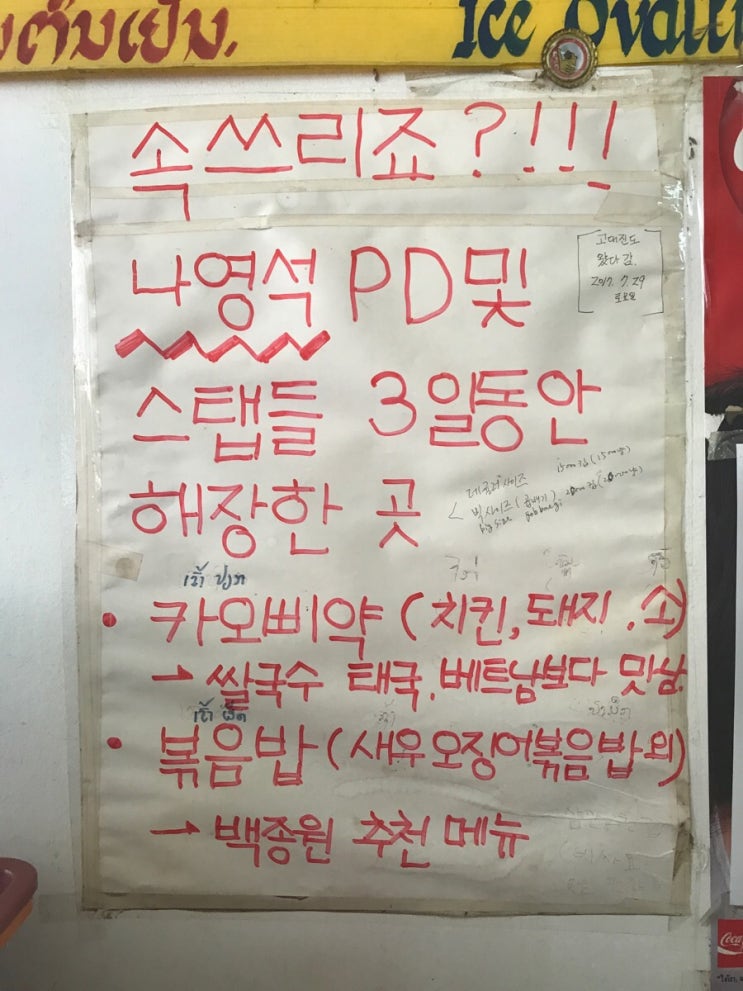 Ice Ovalti
속쓰리죠?!!!
고대진도
왔다 감.
2017. 7. 29
토요일
나영석 PD 및
스탭들 3일동안
해장한 곳
빅사이즈
big size
ເຂົ້າ ປຽກ
• 카오삐약 (치킨, 돼지, 소)
→ 쌀국수 태국, 베트남보다 맛남.
ເຂົ້າ ຜັດ
• 볶음밥 (새우오징어볶음밥외)
→ 백종원 추천 메뉴
Coca